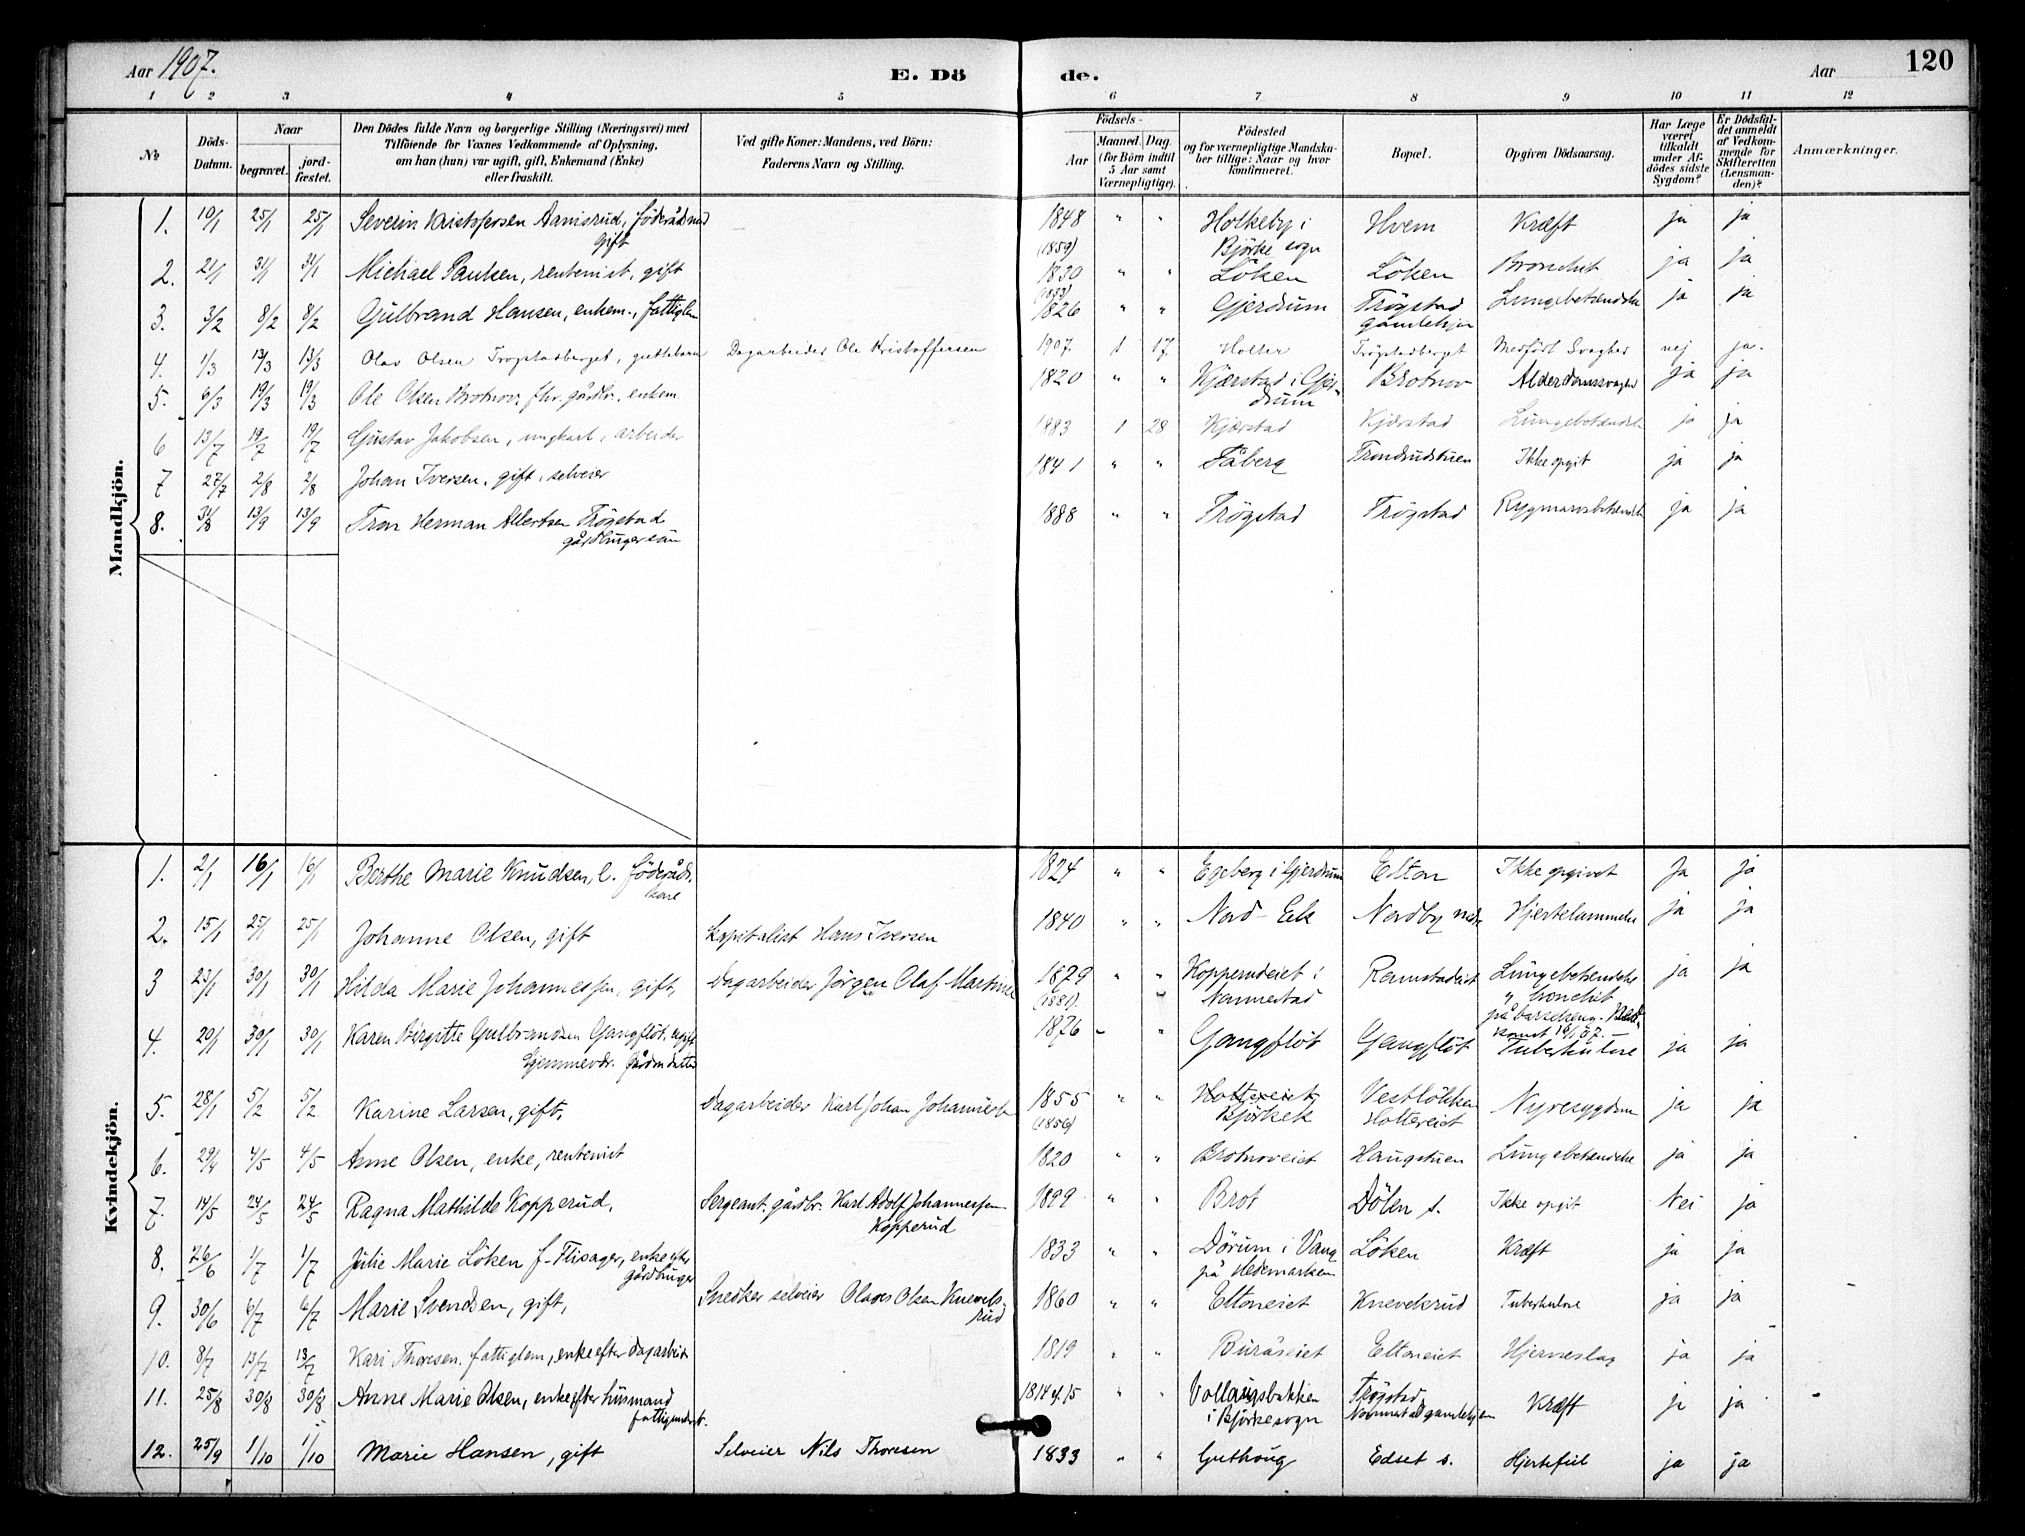 Aar 1907.
E. Dö
de.
Aar
120
1 2 3 4 5 6 7 8 9 10 11 12
№
Döds-Datum.
Naar
begravet.
jord-fæstet.
Den Dödes fulde Navn og borgerlige Stilling (Næringsvei) med
Tilföiende for Voxnes Vedkommende af Oplysning,
om han (hun) var ugift, gift, Enkemand (Enke)
eller fraskilt.
Ved gifte Koner: Mandens, ved Börn:
Faderens Navn og Stilling.
Födsels-
Aar
Maaned. Dag.
(for Börn indtil
5 Aar samt
Værnepligtige).
Födested
og for værnepligtige Mandska-
ber tillige: Naar og hvor
konfirmeret.
Bopæl.
Opgiven Dödsaarsag.
Har Læge
været
tilkaldt
under Af-
dödes sidste
Sygdom?
Er Dödsfal-
det anmeldt
af Vedkom-
mende for
Skifteretten
(Lensman-
den)?
Anmærkninger.
Mandkjön.
1. 10/1 25/1 25/1 Severin Kristofersen Arnisrud, föderådmd gift 1848 (1859) " " Holkeby i Björke sogn Hvem Kræft ja ja
2. 21/1 31/1 31/1 Michael Paulsen, rentenist, gift 1830 " " Löken Löken Bronchit ja ja
3. 3/2 8/2 8/2 Gulbrand Hansen, enkem., fattiglem 1826 " " Gjerdrum Trögstad gamlehjem Lungebetændelse ja ja
4. 1/3 13/3 13/3 Olav Olsen Trögstadberget, guttebarn Dagarbeider Ole Kristoffersen 1907. 1 17. Holter Trögstadberget Medfödt Svaghed nej ja.
5. 6/3 19/3 19/3 Ole Olsen Brotnov, fhv. gårdbr., enkem. 1820 " " Kjærstad i Gjer-drum Brotnov Alderdomssvaghed ja ja
6 13/7 19/7 19/7 Gustav Jakobsen, ungkarl, arbeider 1883 1 28 Kjærstad Kjærstad Lungebetændelse ja ja
7 27/7 2/8 2/8 Johan Iversen, gift, selveier 1841 " " Fåberg Trondrudstuen Ikke opgit ja ja
8. 31/8 13/9 13/9 Tron Herman Albertsen Trögstad gårdbrugersön 1888 " " Trögstad Trögstad Rygmarvsbetændelse ja ja
Kvindekjön.
1. 2/1 16/1 16/1 Berthe Marie Knudsen, e. föderåds-kone 1824 " " Egeberg i Gjerdrum Elton Ikke opgivet Ja ja
2. 15/1 25/1 25/1 Johanne Olsen, gift Kapitalist Hans Iversen 1840 " " Nord-Eik Nordby nedr Hjertelammelse ja ja
3 23/1 30/1 30/1 Hilda Marie Johannessen, gift, Dagarbeider Jörgen Olaf Martinse 1879 (1881) " " Kopperudeiet i Nannestad Ramstadeiet Lungebetændelse " bronchit på barselseng. 16/1 07. ja ja
4. 20/1 30/1 30/1 Karen Birgitte Gulbrandsen Gangflöt, ugift hjemmevær. Gårdmdatter 1876 - " Gangflöt Gangflöt Tuberkulose ja ja
5. 28/1 5/2 5/2 Karine Larsen, gift, Dagarbeider Karl Johan Johannesen 1855 (1856) " " Holtereiet Björkek Vestlökken Holtereiet Nyresygdom ja ja
6. 29/4 4/5 4/5 Anne Olsen, enke, rentenist 1820 " " Brotnoveiet Haugstuen Lungebetændelse ja ja
7. 14/5 24/5 24/5 Ragna Mathilde Kopperud, Sergeant, gårdbr. Karl Adolf Johannessen Kopperud 1899 " " Brot Dölen s. Ikke opgit Nei ja
8. 26/6 1/7 1/7 Julie Marie Löken f. Flisager, enke efter gårdbruger 1833 " " Dörum i Vang på Hedemarken Löken Kræft ja ja
9. 30/6 6/7 6/7 Marie Svendsen, gift, Snedker selveier Olaves Olsen Knevels-rud 1860 " " Eltoneiet Knevelsrud Tuberkulose ja ja
10. 8/7 13/7 13/7 Kari Thoresen, fattiglem, enke efter dagarbeid 1819 " " Buråseiet Eltoneiet Hjerneslag ja ja
11. 25/8 30/8 30/8 Anne Marie Olsen, enke efter husmand fattigunderst. 1814 el. 15 " " Vollaugsbakken i Björke sogn Trögstad Nannestad gamlehjem Kræft ja ja
12. 25/9 1/10 1/10 Marie Hansen, gift Selveier Nils Thoresen 1833 " " Guthoug Edset s. Hjertefeil ja ja